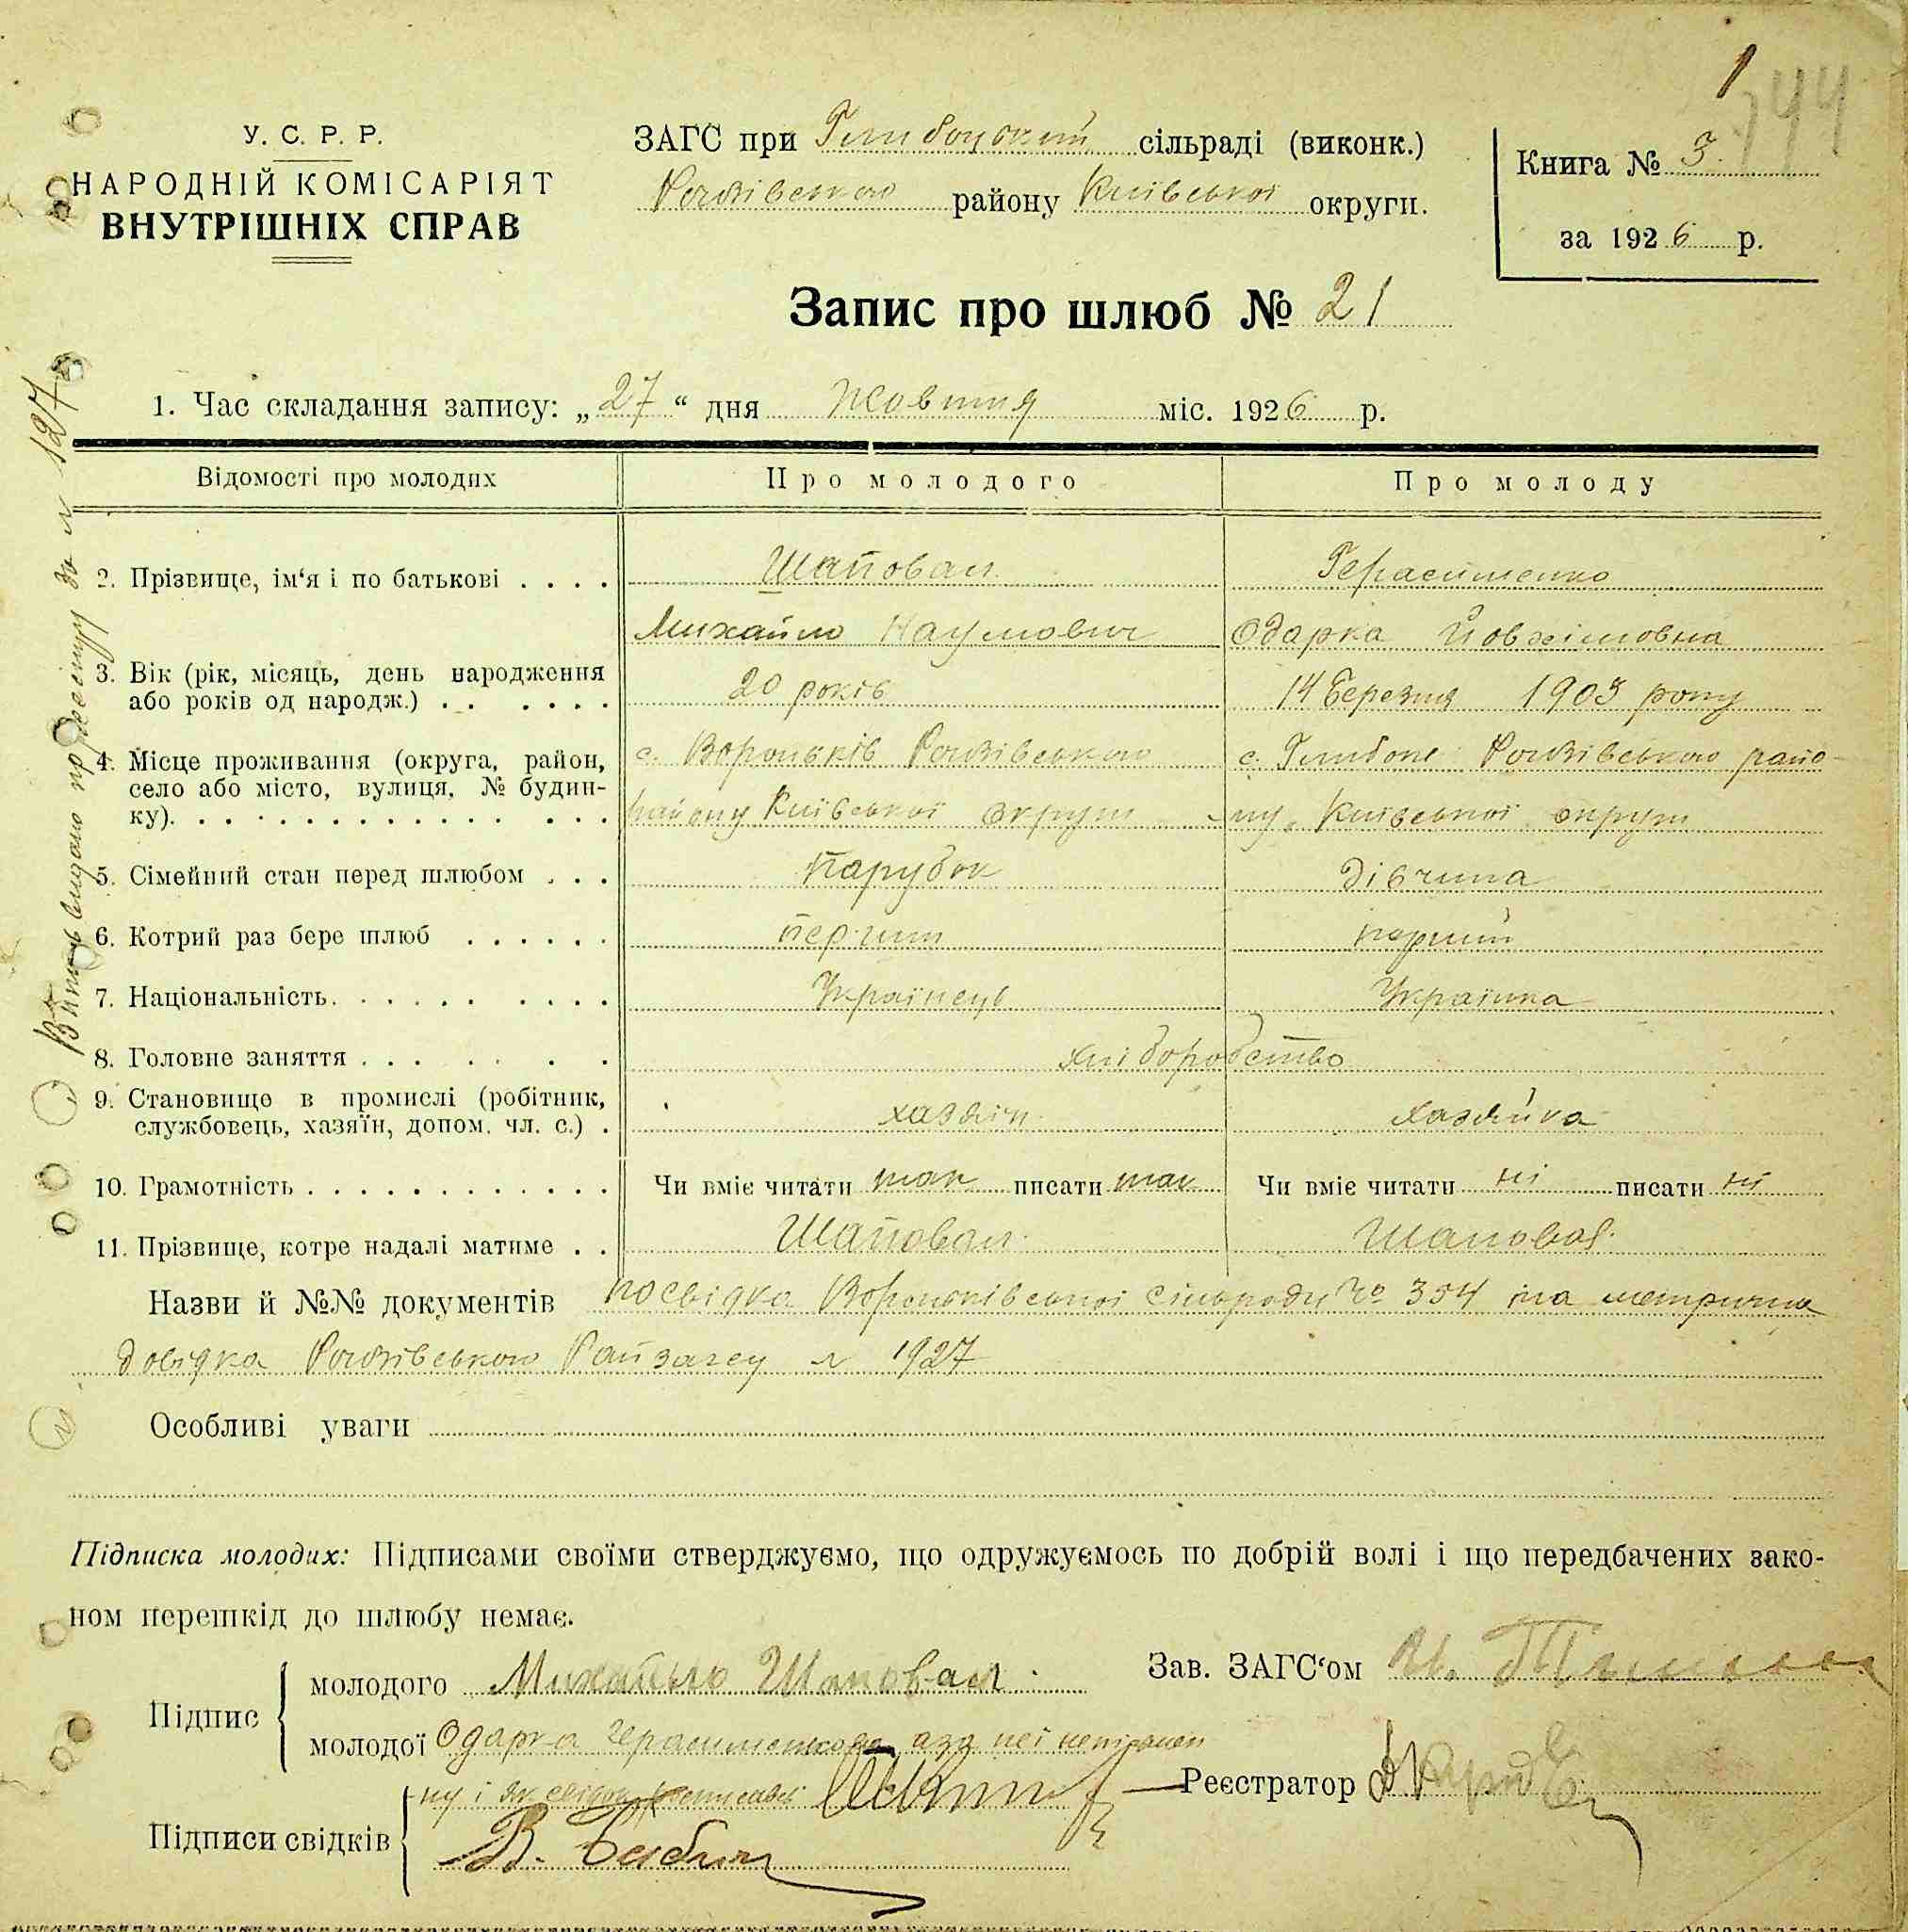 144
У. С. Р. Р.
НАРОДНІЙ КОМІСАРІЯТ
ВНУТРІШНІХ СПРАВ
ЗАГС при Глибоцький сільраді (виконк.)
Рогозівського району Київської округи.
Книга № 3
за 1926 р.
Запис про шлюб № 21
1. Час складання запису: „27“ дня жовтня міс. 1926 р.
Відомості про молодих Про молодого Про молоду
2. Прізвище, ім‘я і по батькові . . . . Шаповал Герасименко
Михайло Наумович Одарка Йовхімовна
3. Вік (рік, місяць, день народження
або років од народж.) . . . . . . 20 років 14 березня 1903 року
4. Місце проживання (округа, район, с. Вороньків Рогозівського с. Глибоке Рогозівського райо-
село або місто, вулиця, № будин-
ку). району Київської округи ну, Київської округи
5. Сімейний стан перед шлюбом . . . Парубок дівчина
6. Котрий раз бере шлюб . . . . . . перший перший
7. Національність. Українець Українка
8. Головне заняття . . . хліборобство
9. Становище в промислі (робітник,
службовець, хазяїн, допом. чл. с.) . хазяїн хазяйка
10. Грамотність Чи вміє читати так писати так Чи вміє читати ні писати ні
11. Прізвище, котре надалі матиме . . Шаповал Шаповал
Назви й №№ документів посвідка Вороньківської сільради № 354 та метрична
довідка Рогозівського Райзагсу № 1927
Особливі уваги
Підписка молодих: Підписами своїми стверджуємо, що одружуємось по добрій волі і що передбачених зако-
ном перешкід до шлюбу немає.
Підпис молодого Михайло Шаповал Зав. ЗАГС‘ом
молодої Одарка Герасименкова, а за неї неписмен
ну і як свідок росписавсь Реєстратор
Підписи свідків В.
Витяг видано по реєстру за № 127